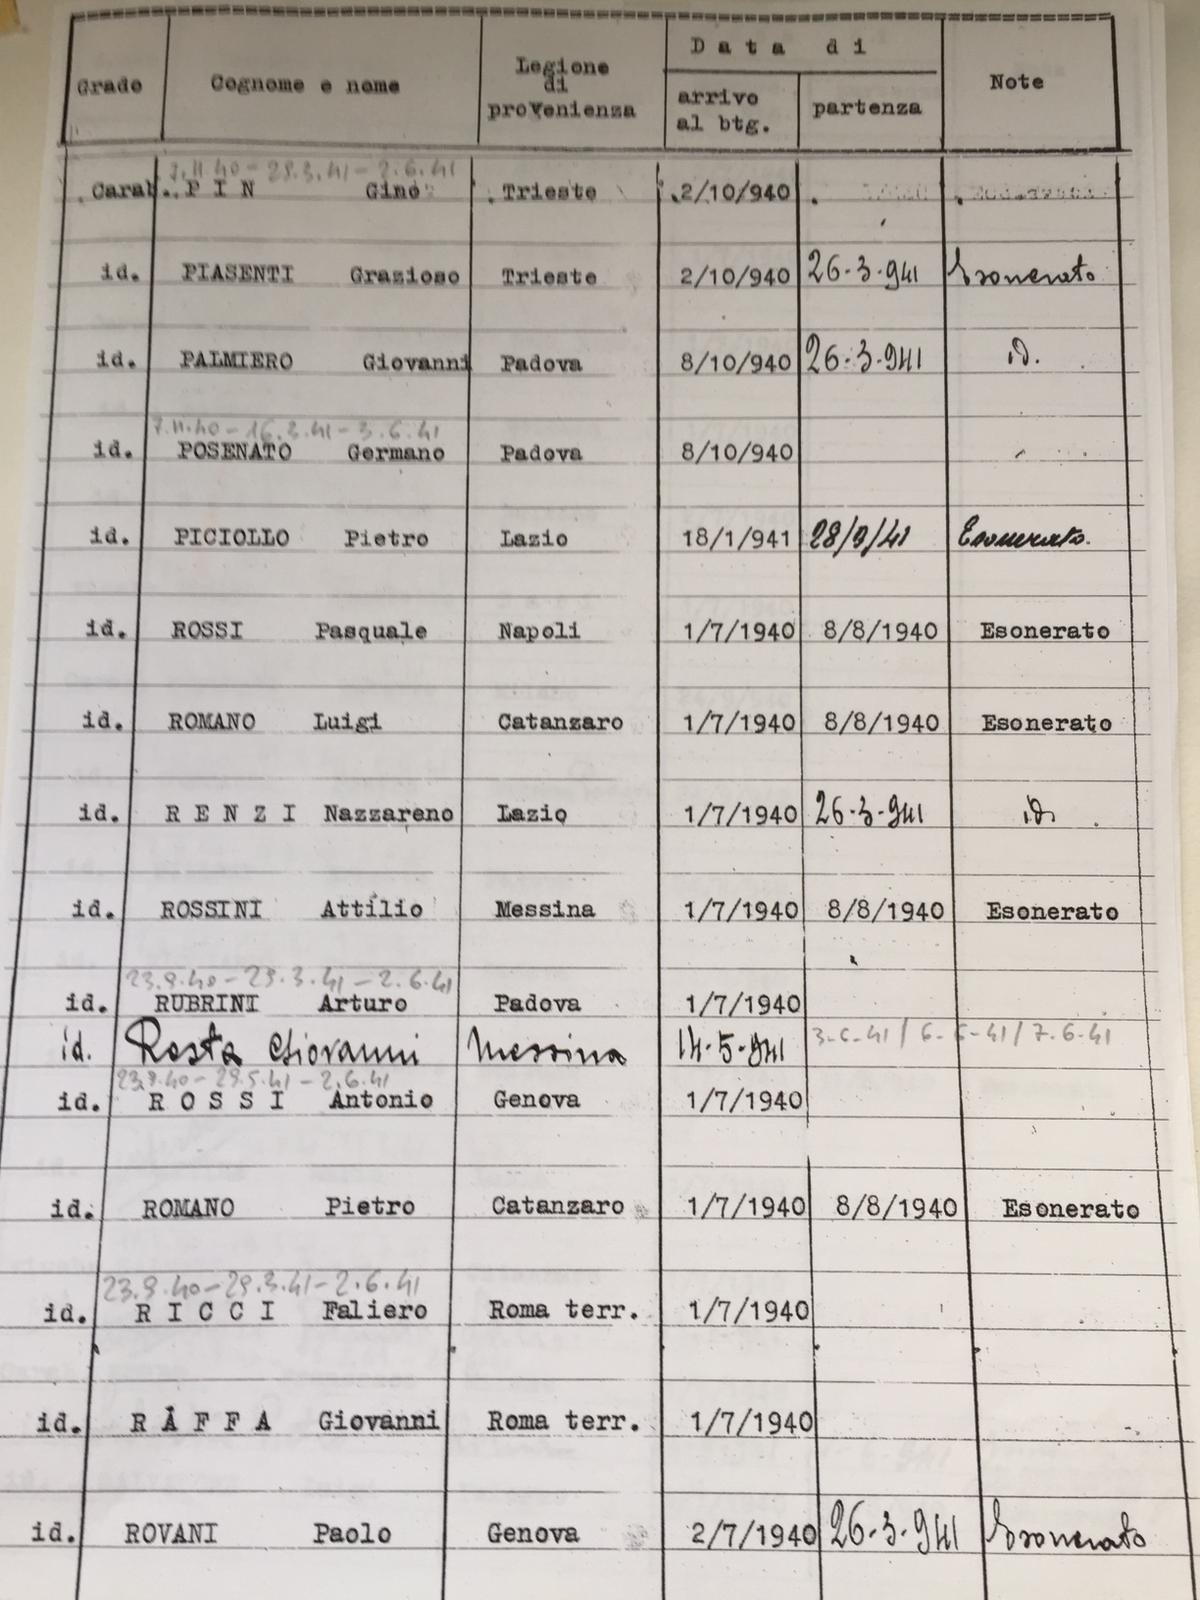 Grado Cognome e nome Legione di provenienza Data di Note
arrivo al btg. partenza
7.11.40 - 2.6.41
Carab. P I N Gino Trieste 2/10/940
id. PIASENTI Grazioso Trieste 2/10/940 26-3-941 Esonerato
id. PALMIERO Giovanni Padova 8/10/940 26-3-941 id.
7.11.40 - 16.3.41 - 3.6.41
id. POSENATO Germano Padova 8/10/940
id. PICIOLLO Pietro Lazio 18/1/941 Esonerato.
id. ROSSI Pasquale Napoli 1/7/1940 8/8/1940 Esonerato
id. ROMANO Luigi Catanzaro 1/7/1940 8/8/1940 Esonerato
id. R E N Z I Nazzareno Lazio 1/7/1940 26-3-941 id
id. ROSSINI Attilio Messina 1/7/1940 8/8/1940 Esonerato
23.9.40 - 29.3.41 - 2.6.41
id. RUBRINI Arturo Padova 1/7/1940
id. Resta Giovanni Messina 14-5-941 3-6-41 / 6-6-41 / 7.6.41
23.9.40 - 29.5.41 - 2.6.41
id. R O S S I Antonio Genova 1/7/1940
id. ROMANO Pietro Catanzaro 1/7/1940 8/8/1940 Esonerato
23.9.40 - 29.3.41 - 2.6.41
id. R I C C I Faliero Roma terr. 1/7/1940
id. R A F F A Giovanni Roma terr. 1/7/1940
id. ROVANI Paolo Genova 2/7/1940 26-3-941 Esonerato